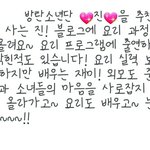 방탄소년단 💗진💗을 추천
사는 진! 블로그에 요리 과정
올려요~ 요리 프로그램에 출연하
적도 있습니다! 요리 실력 보
하지만 배우는 재미! 외모도 훈
과 소년들의 마음을 사로잡지
올라가고~ 요리도 배우고~ 는
~~~~!!